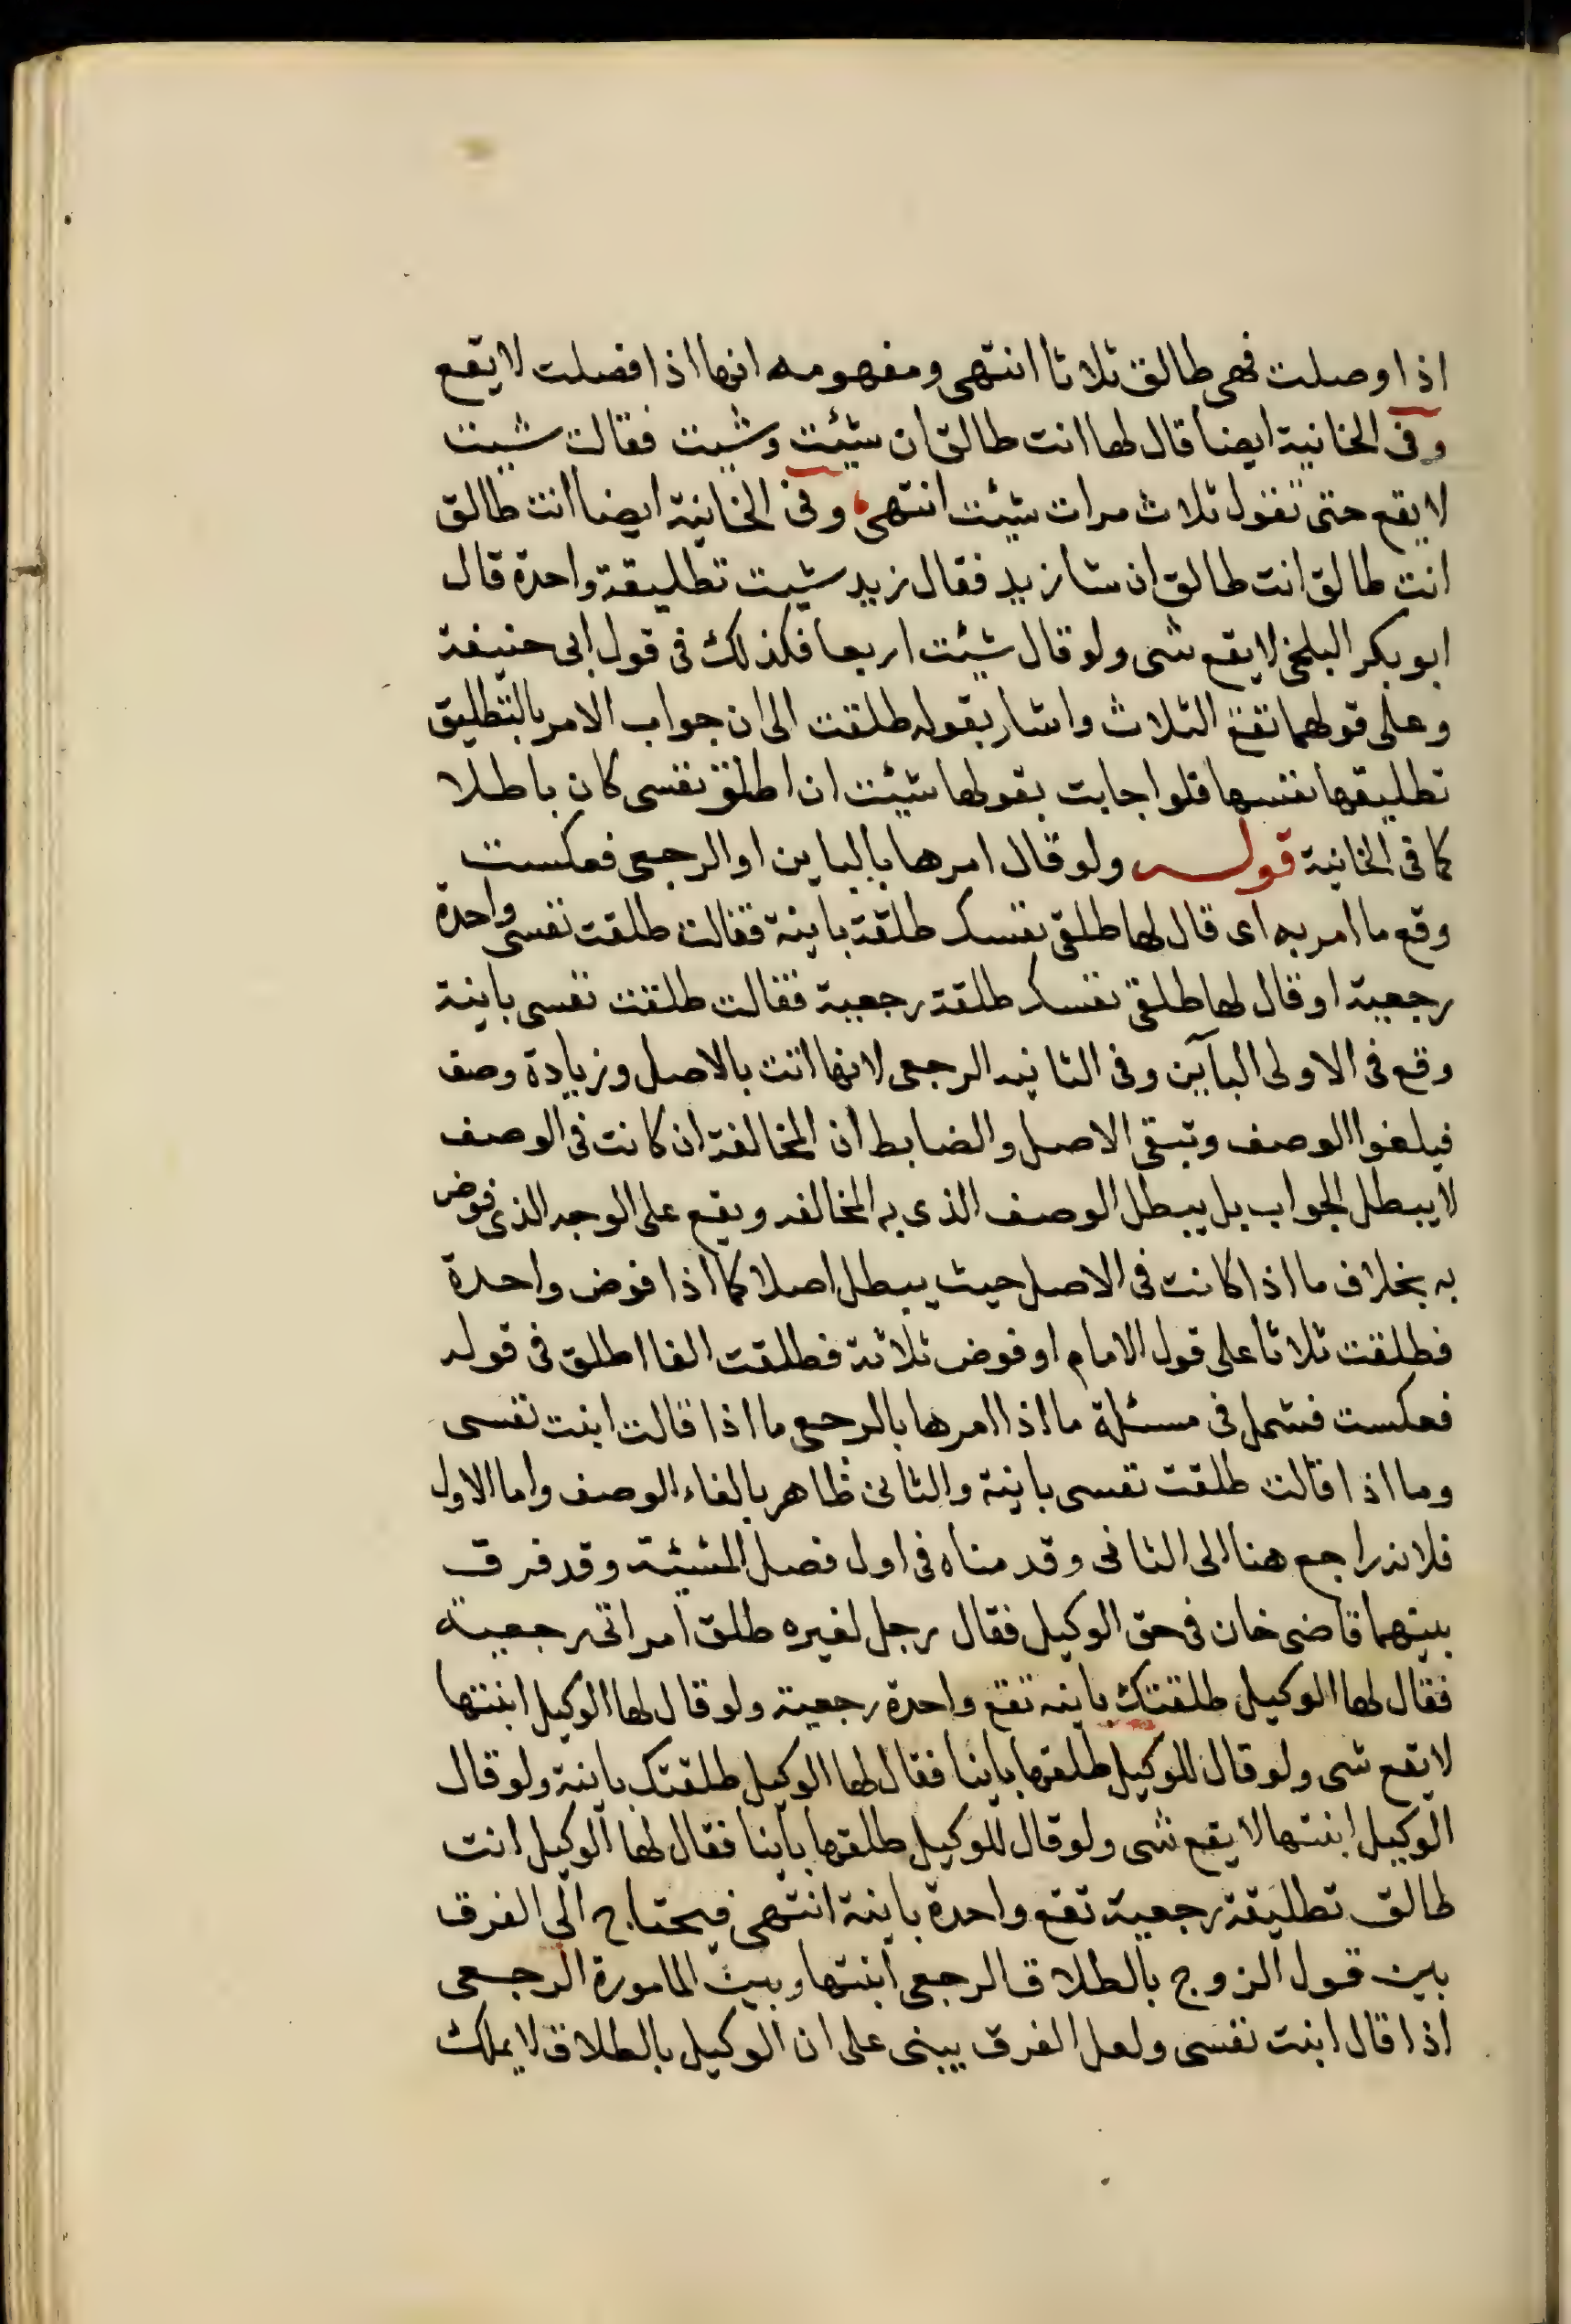 اذا وصلت فهى طالق ثلاثا انتهى ومفهومه انها اذا فصلت لا يقع
وفى الخانية ايضا قال لها انت طالق ان شئت وشيت فقالت شيت
لا يقع حتى تقول ثلاث مرات شيت انتهى وفى الخانية ايضا انت طالق
انت طالق انت طالق ان شا زيد فقال زيد شيت تطليقة واحدة قال
ابو بكر البلخى لا يقع شى ولو قال شيئت اربعا فكذلك فى قول ابى حنيفة
وعلى قولهما تقع الثلاث واشار بقوله طلقت الى ان جواب الامر بالتطليق
تطليقها نفسها فلو اجابت بقولها شيئت ان اطلق نفسى كان باطلا
كما فى الخانية قوله ولو قال امرها بالباين او الرجعى فعكست
وقع ما امر به اى قال لها طلقى نفسك طلقة باينة فقالت طلقت نفسى واحدة
رجعية او قال لها طلقى نفسك طلقة رجعية فقالت طلقت نفسى باينة
وقع فى الاولى البآين وفى الثانيه الرجعى لانها اتت بالاصل وزيادة وصف
فيلغوا الوصف وتبقى الاصل والضابط ان المخالفة ان كانت فى الوصف
لا يبطل الجواب بل يبطل الوصف الذى به المخالفه ويقع على الوجه الذى فوض
به بخلاف ما اذا كانت فى الاصل حيث يبطل اصلا كما اذا فوض واحدة
فطلقت ثلاثا على قول الامام او فوض ثلاثة فطلقت الفا اطلق فى قوله
فعكست فشمل فى مسئلة ما اذا امرها بالرجعى ما اذا قالت ابنت نفسى
وما اذا قالت طلقت نفسى باينة والثانى ظاهر بالغاء الوصف واما الاول
فلانه راجع هنا الى الثانى وقدمناه فى اول فصل المشيئة وقد فرق
بينهما قاضى خان فى حق الوكيل فقال رجل لغيره طلق امراتى رجعية
فقال لها الوكيل طلقتك باينه تقع واحدة رجعية ولو قال لها الوكيل ابنتها
لا تقع شى ولو قال للوكيل طلقها باينا فقال لها الوكيل طلقتك باينة ولو قال
الوكيل ابنتها لا يقع شى ولو قال للوكيل طلقها باينا فقال لها الوكيل انت
طالق تطليقة رجعية تقع واحدة باينة انتهى فيحتاج الى الفرق
بين قول الزوج بالطلاق الرجعى ابنتها وبين المامورة الرجعى
اذا قال ابنت نفسى ولعل الفرق يبنى على ان الوكيل بالطلاق لا يملك